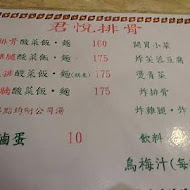 君悅排骨
排骨酸菜飯·麵 160
腿酸菜飯·麵 175
排酸菜飯·麵 175
酸菜飯·麵 175
點均附公司湯
滷蛋 10
開胃小菜
炸芙蓉豆腐
燙青菜
炸排骨
炸雞腿·炸
飲料
烏梅汁(每